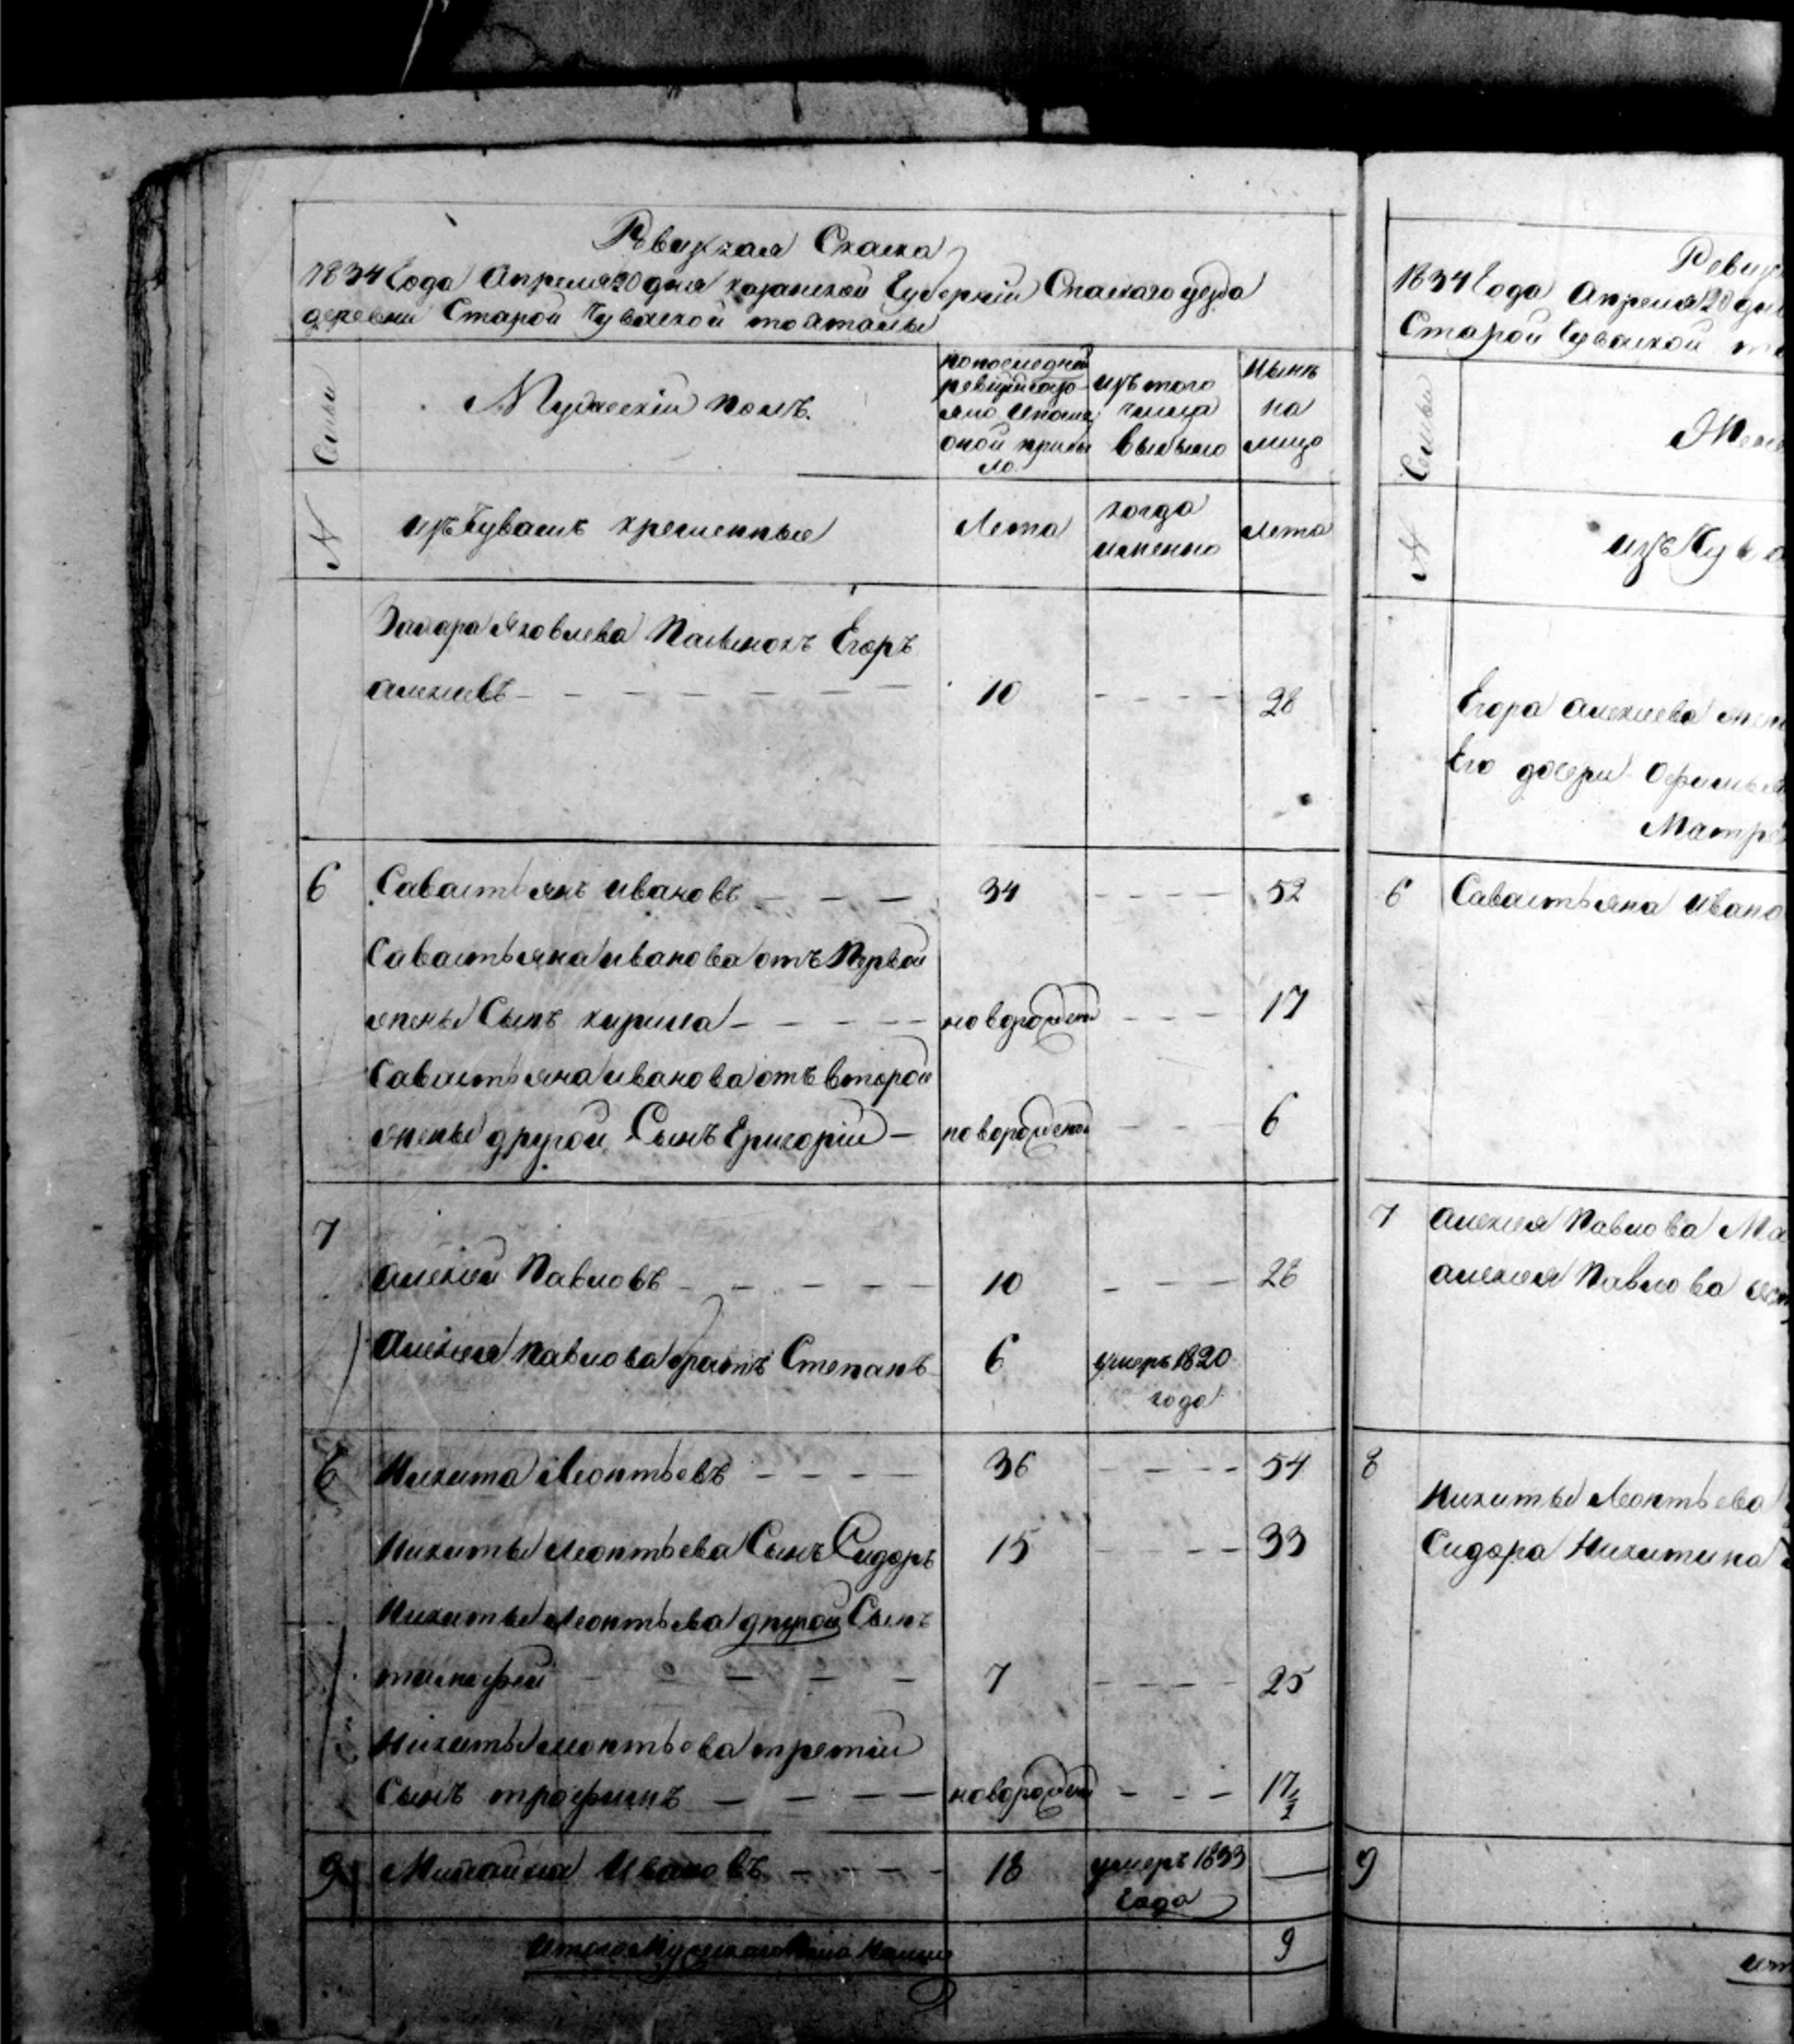 Ревизкая Скаска
1834 Года Апреля 20 дня казанской Губернии Спаскаго уезда
деревни Старой Чувашской
Семьи
Мужескій полъ.
по последней
ревизии состо
яло и после
оной прибы
ло
изъ того
числа
выбыло
Ныне
на
лицо
№
изъ Чувашъ крещенные
Лета
когда
именно
лета
Захара Яковлева Егоръ
алексеевъ
10
28
6
Савастьянъ ивановъ
34
52
Савастьяна иванова отъ Первой
жены Сынъ кирила
новорожден
17
Савастьяна иванова отъ второй
жены другой Сынъ Григорій
новорожден
6
7
алексей Павловъ
10
28
Алексея Павлова братъ Степанъ
6
умеръ 1820
года
8
Никита Леонтьевъ
36
54
Никиты Леонтьева Сынъ Сидоръ
15
33
Никиты Леонтьева другой Сынъ
тимофей
7
25
Никиты леонтьева третій
Сынъ трофимъ
новорожден
17 1/2
9
Ивановъ
18
умеръ 1833
Года
Итого Мужескаго Пола Налицо
9
Ревиз
1834 Года Апреля 20 дн
Старой Чувашской
Семьи
Жен
№
изъ Чува
Егора алексеева жен
Его дочери Офимья
Матре
6
Савастьяна ивано
7
Алексея Павлова Ма
алексея Павлова жен
8
Никиты Леонтьева
Сидора Никитина
9
ит